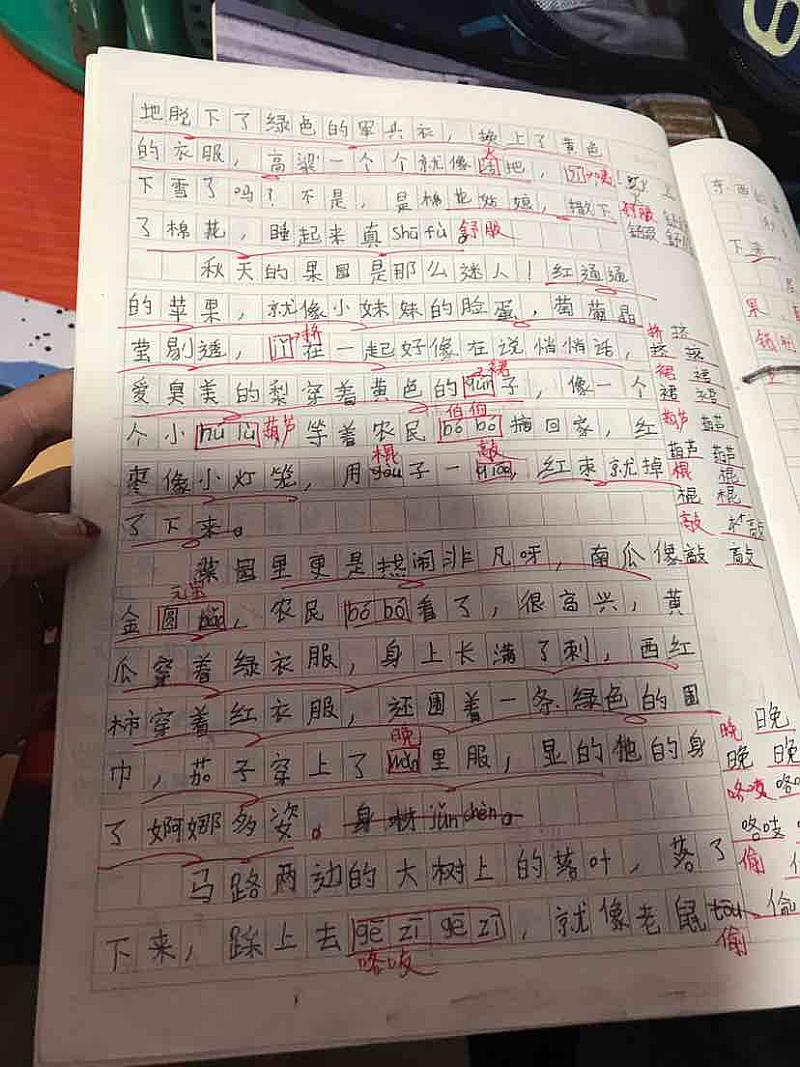 地脱下了绿色的军兵衣，换上了黄色
的衣服，高粱一个个就像火把，
下雪了吗？不是，是棉花姑娘，撒下
了棉花，睡起来真shū fú舒服
秋天的果园是那么迷人！红通通
的苹果，就像小妹妹的脸蛋，葡萄晶
莹剔透，挤在一起好像在说悄悄话，
爱臭美的梨穿着黄色的qún裙子，像一个
个小hú lu葫芦等着农民bó bo伯伯摘回家，红
枣像小灯笼，用棍子一敲，红枣就掉
了下来。
菜园里更是热闹非凡呀，南瓜像
金圆bǎo元宝，农民bó bo看了，很高兴，黄
瓜穿着绿衣服，身上长满了刺，西红
柿穿着红衣服，还围着一条绿色的围
巾，茄子穿上了wǎn晚里服，显的他的身
了婀娜多姿。身材jūn chèn。
马路两边的大树上的落叶，落了
下来，踩上去gē zī gē zī咯吱，就像老鼠tōu偷
舒服
挤 挤
裙 裙
葫芦 葫芦
葫芦 葫芦
棍 棍
棍 棍
敲 敲
敲 敲
晚 晚
晚 晚
咯吱
咯吱
偷
偷
东西的
下来，
果